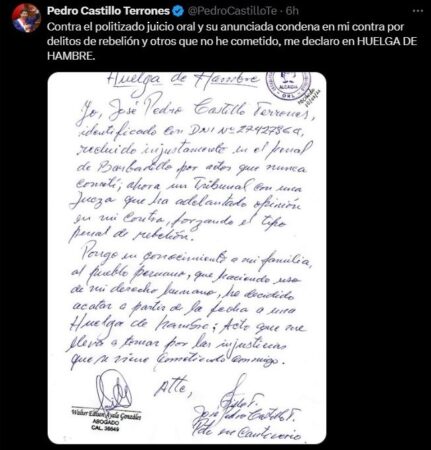 Pedro Castillo Terrones @PedroCastilloTe · 6h
Contra el politizado juicio oral y su anunciada condena en mi contra por
delitos de rebelión y otros que no he cometido, me declaro en HUELGA DE
HAMBRE.
Huelga de Hambre
ALCALDIA
Yo, José Pedro Castillo Terrones,
identificado con DNI Nº 27427864,
recluido injustamente en el penal
de Barbadillo por actos que nunca
cometí; ahora un Tribunal con una
Jueza que ha adelantado opinión
en mi contra, forzando el tipo
penal de rebelión.
Pongo en conocimiento a mi familia,
al pueblo peruano, que haciendo uso
de mi derecho humano, he decidido
acatar a partir de la fecha a una
Huelga de hambre; Acto que me
lleva a tomar por las injusticias
que se viene cometiendo conmigo.
Atte,
Walter Edison Ayala Gonzáles
ABOGADO
CAL. 36849
José Pedro Castillo T.
Pdte en Cautiverio